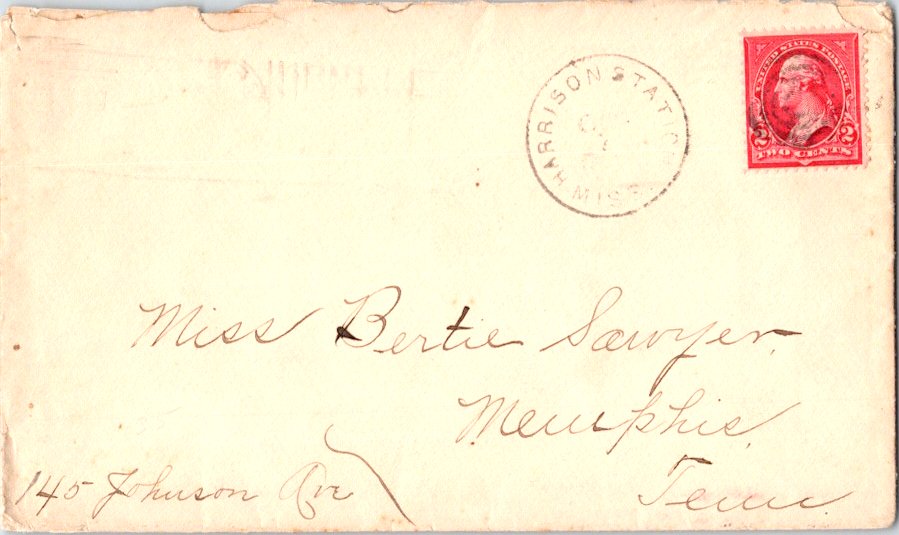 HARRISON STATION
MISS
UNITED STATES POSTAGE
2 2
TWO CENTS
Miss Bertie Sawyer.
Memphis,
145 Johnson Ave
Tenn